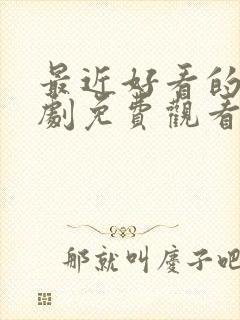 最近好看的
劇免費觀看
那就叫慶子吧